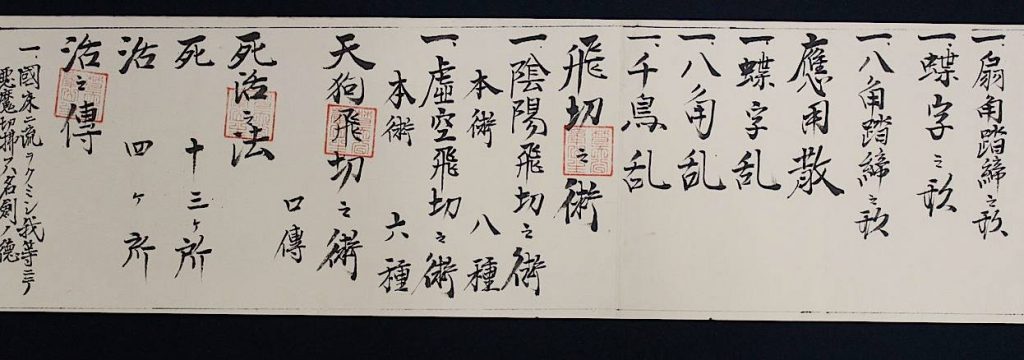 一、扇角踏締之形
一、蝶字之形
一、八角踏締之形
應用散
一、蝶字乱
一、八角乱
一、千鳥乱
飛切之術
一、陰陽飛切之術
本術 八種
一、虚空飛切之術
本術 六種
天狗飛切之術
口傳
死活之法
死 十三ヶ所
活 四ヶ所
活之傳
一、國床二流ヲクミシ我等ニテ
悪魔切拂フ名劍ノ徳